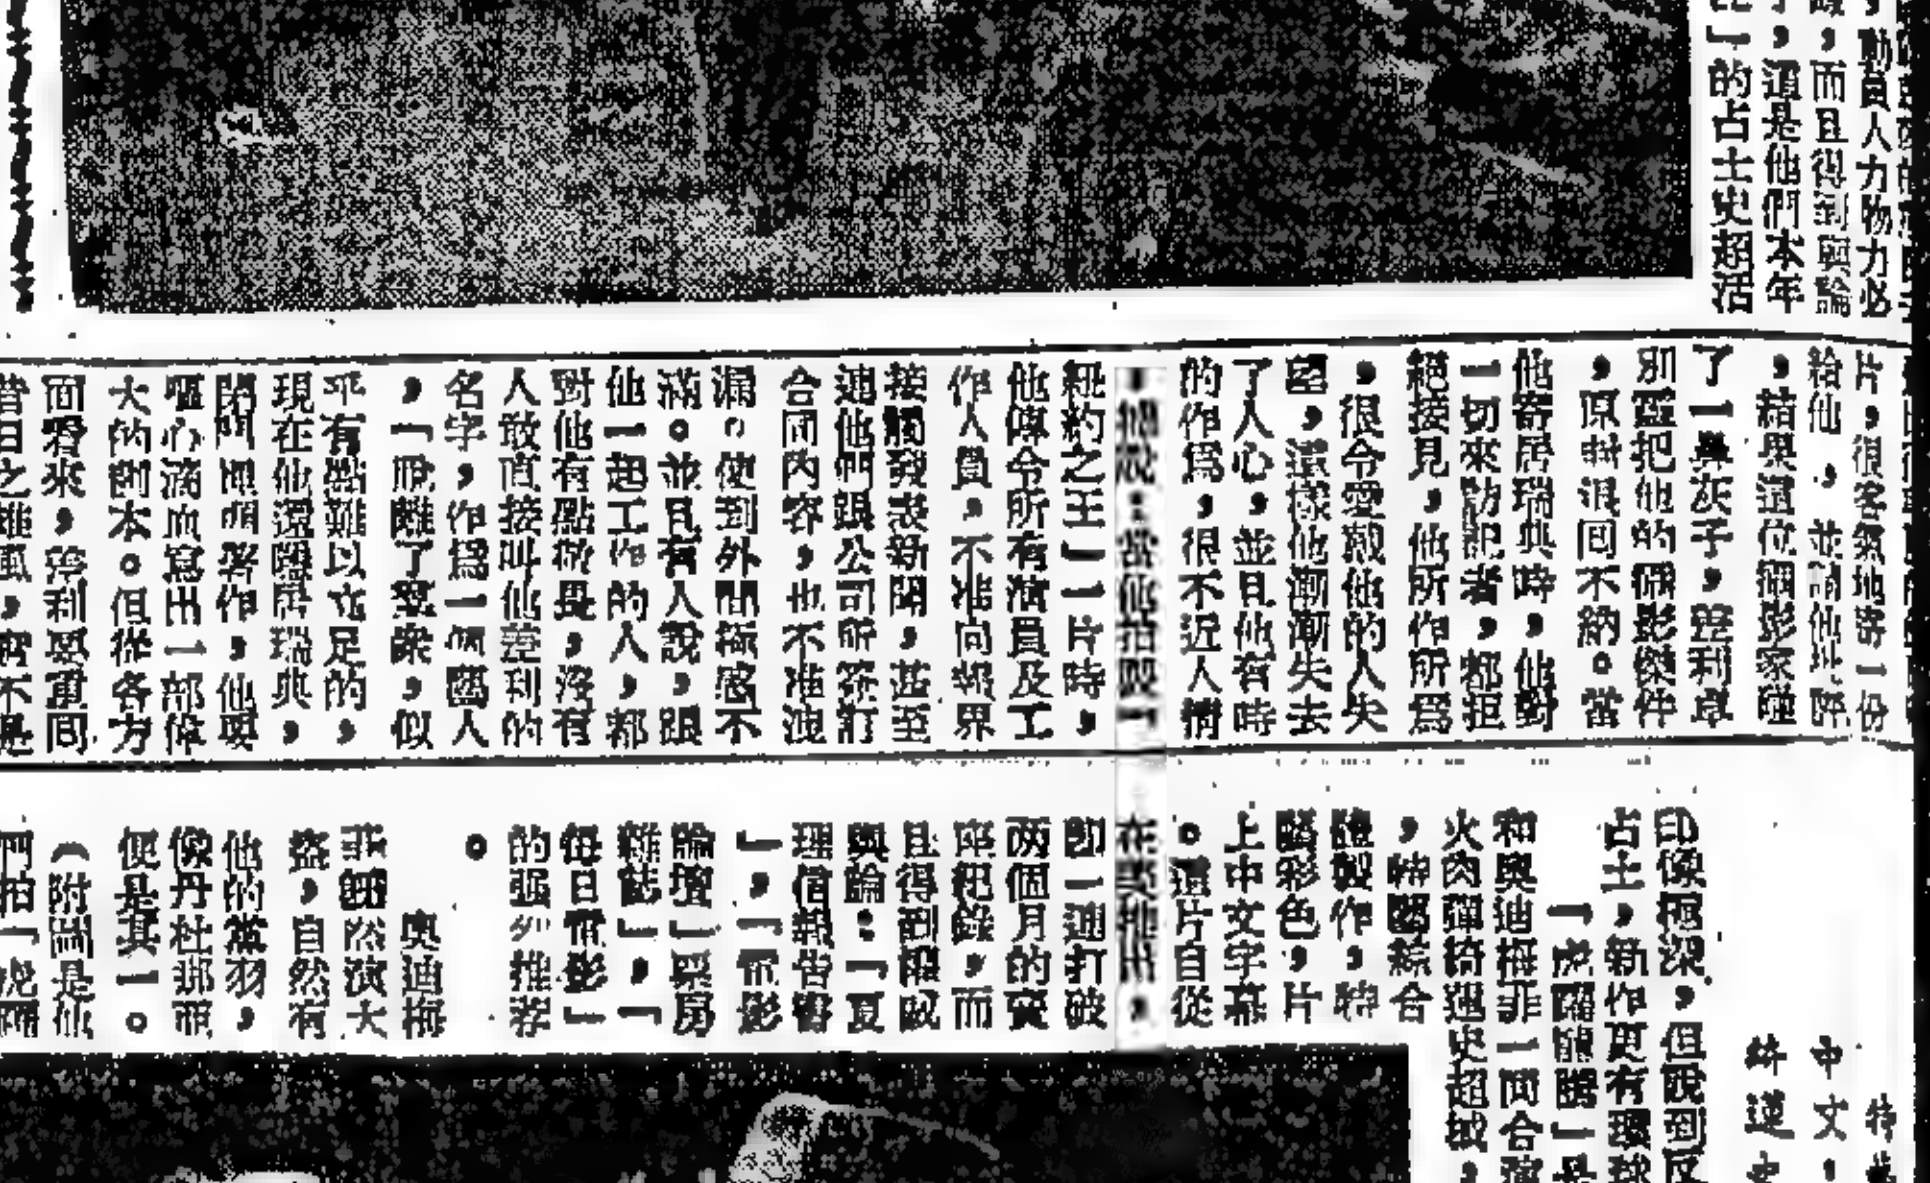 ，動員人力物力必
，而且得到輿論
，這是他們本年
」的占士史超活
片，很客氣地寄一份
給他，並請他批評
，結果這位攝影家碰
了一鼻灰子，差利卓
別靈把他的攝影傑作
，原封退回不納。當
他寄居瑞典時，他對
一切來訪記者，都拒
絕接見，他所作所爲
，很令愛戴他的人失
望，這樣他漸漸失去
了人心，並且他有時
的作爲，很不近人情
，據說：當他拍製「
紐約之王」一片時，
他傳令所有演員及工
作人員，不准向報界
接觸發表新聞，甚至
連他們跟公司所簽訂
合同內容，也不准洩
漏。使到外間極感不
滿。並且有人說，跟
他一起工作的人，都
對他有點敬畏，沒有
人敢直接叫他差利的
名字，作爲一個藝人
，「脫離了羣衆，似
乎有點難以立足的，
現在他還隱居瑞典，
閉門埋頭著作，他要
嘔心滴血寫出一部偉
大的劇本。但從各方
面看來，差利要重回
昔日之雄風，實不是
特
中文，
印像極深，但說到反
占士，新作更有環球
「虎嘯龍騰」是
和奧迪梅菲一同合演
火肉彈綺遇史超域，
，特藝綜合
體製作，特
藝彩色，片
上中文字幕
。這片自從
在美推出，
即一連打破
兩個月的賣
座紀錄，而
且得到權威
輿論：「夏
理信報告書
」，「電影
論壇」票房
雜誌」，「
每日電影」
的强力推荐
。
奧迪梅
菲飾演大
盜，自然有
他的黨羽，
像丹杜
便是其一。
（附圖是他
們拍「虎嘯